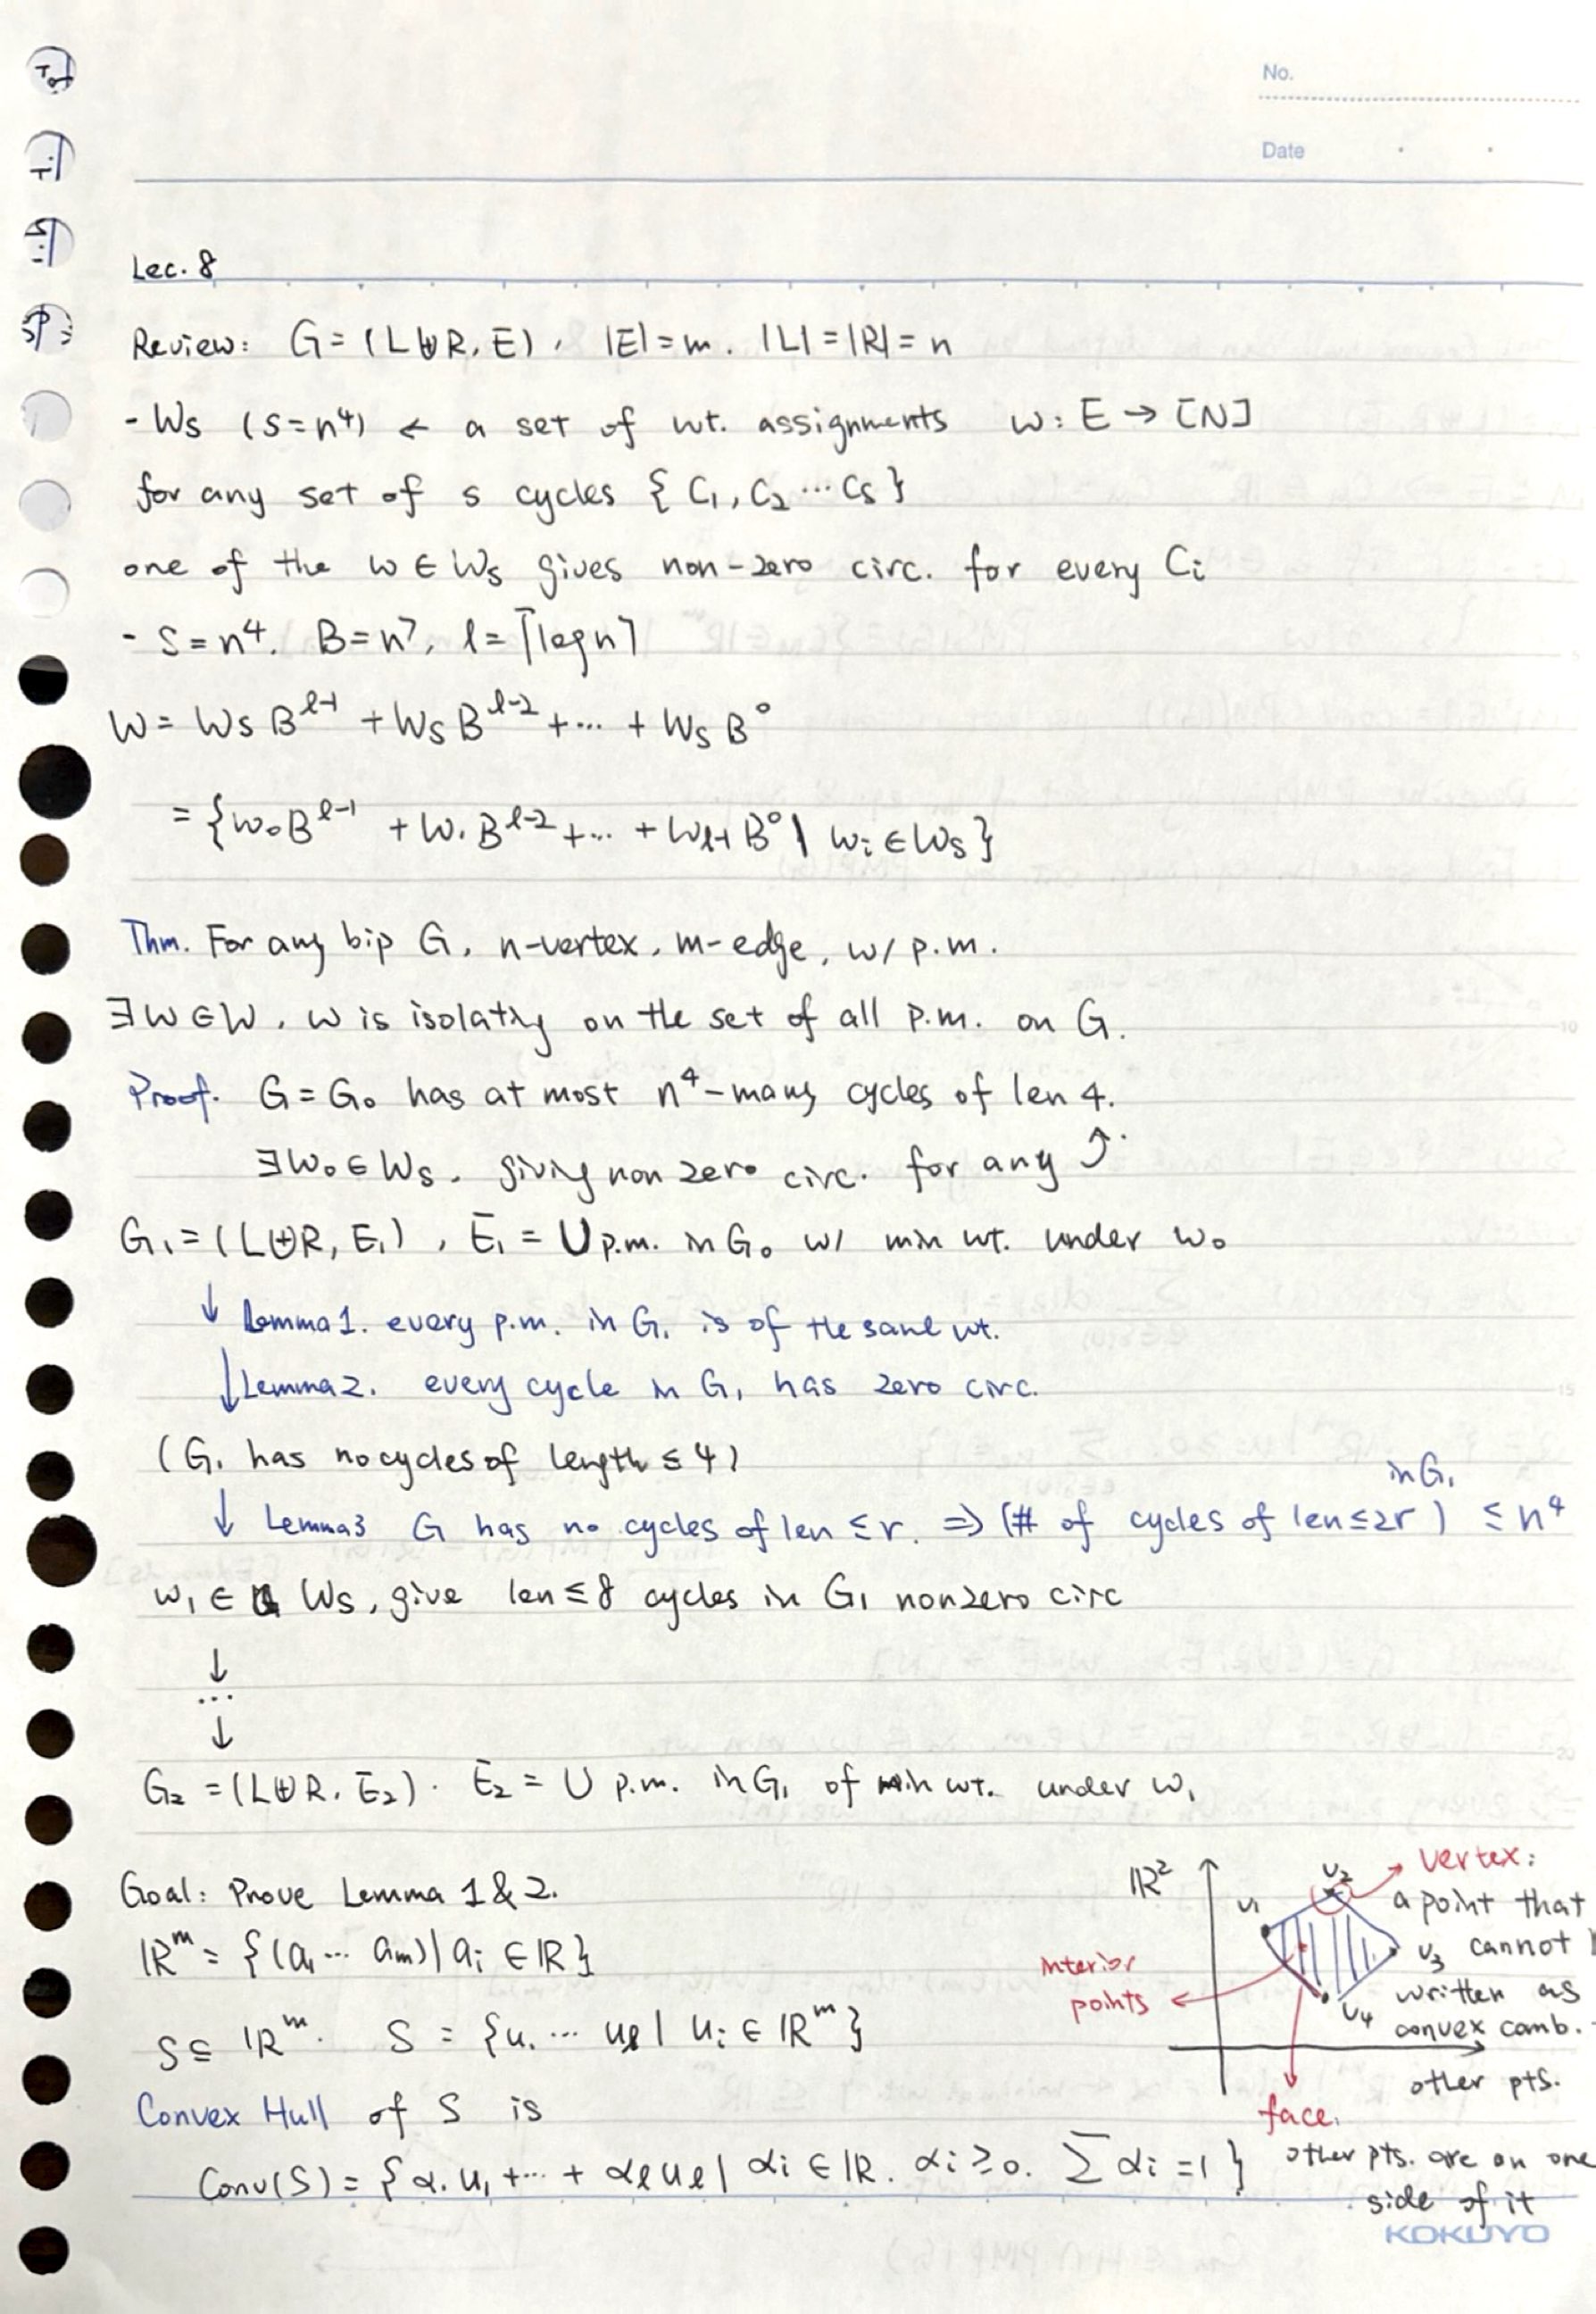 No.
Date
Lec. 8
Review: G = (L⊎R, E), |E|=m. |L|=|R|=n
- Ws (s=n⁴) ← a set of wt. assignments w: E → [N]
for any set of s cycles {C₁, C₂ ... Cs}
one of the w ∈ Ws gives non-zero circ. for every Ci
- S=n⁴. B=n⁷, l=⌈log n⌉
W = Ws B^{l-1} + Ws B^{l-2} + ... + Ws B⁰
= {w₀B^{l-1} + w₁B^{l-2} + ... + w_{l-1}B⁰ | wi ∈ Ws}
Thm. For any bip G, n-vertex, m-edge, w/ p.m.
∃w∈W, w is isolating on the set of all p.m. on G.
Proof. G=G₀ has at most n⁴-many cycles of len 4.
∃w₀∈Ws. giving non zero circ. for any ⤴.
G₁=(L⊎R, E₁), E₁ = ∪ p.m. in G₀ w/ min wt. under w₀
↓ Lemma 1. every p.m. in G₁ is of the same wt.
↓ Lemma 2. every cycle in G₁ has zero circ.
(G₁ has no cycles of length ≤ 4)
in G₁
↓ Lemma 3 G has no cycles of len ≤r. ⇒ (# of cycles of len≤2r) ≤ n⁴
w₁ ∈ Ws, give len≤8 cycles in G₁ nonzero circ
↓
...
↓
G₂ = (L⊎R, E₂). E₂ = ∪ p.m. in G₁ of min wt. under w₁
Goal: Prove Lemma 1 & 2.
ℝ^m = {(a₁ ... am) | ai ∈ ℝ}
S ⊆ ℝ^m. S = {u₁ ... ul | ui ∈ ℝ^m}
Convex Hull of S is
Conv(S) = {α₁u₁ + ... + αl ul | αi ∈ ℝ. αi ≥ 0. Σαi = 1}
ℝ²
u₁
u₂
u₃
u₄
vertex:
a point that
cannot
written as
convex comb.
other pts.
interior
points
face.
other pts. are on one
side of it
KOKUYO